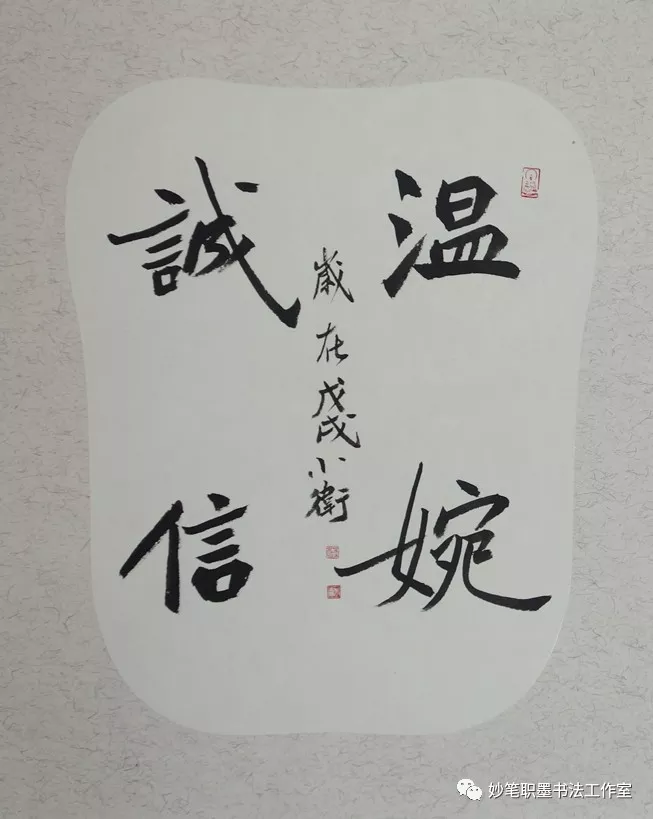 温婉
誠信
歲在戊戌小衛
妙笔职墨书法工作室